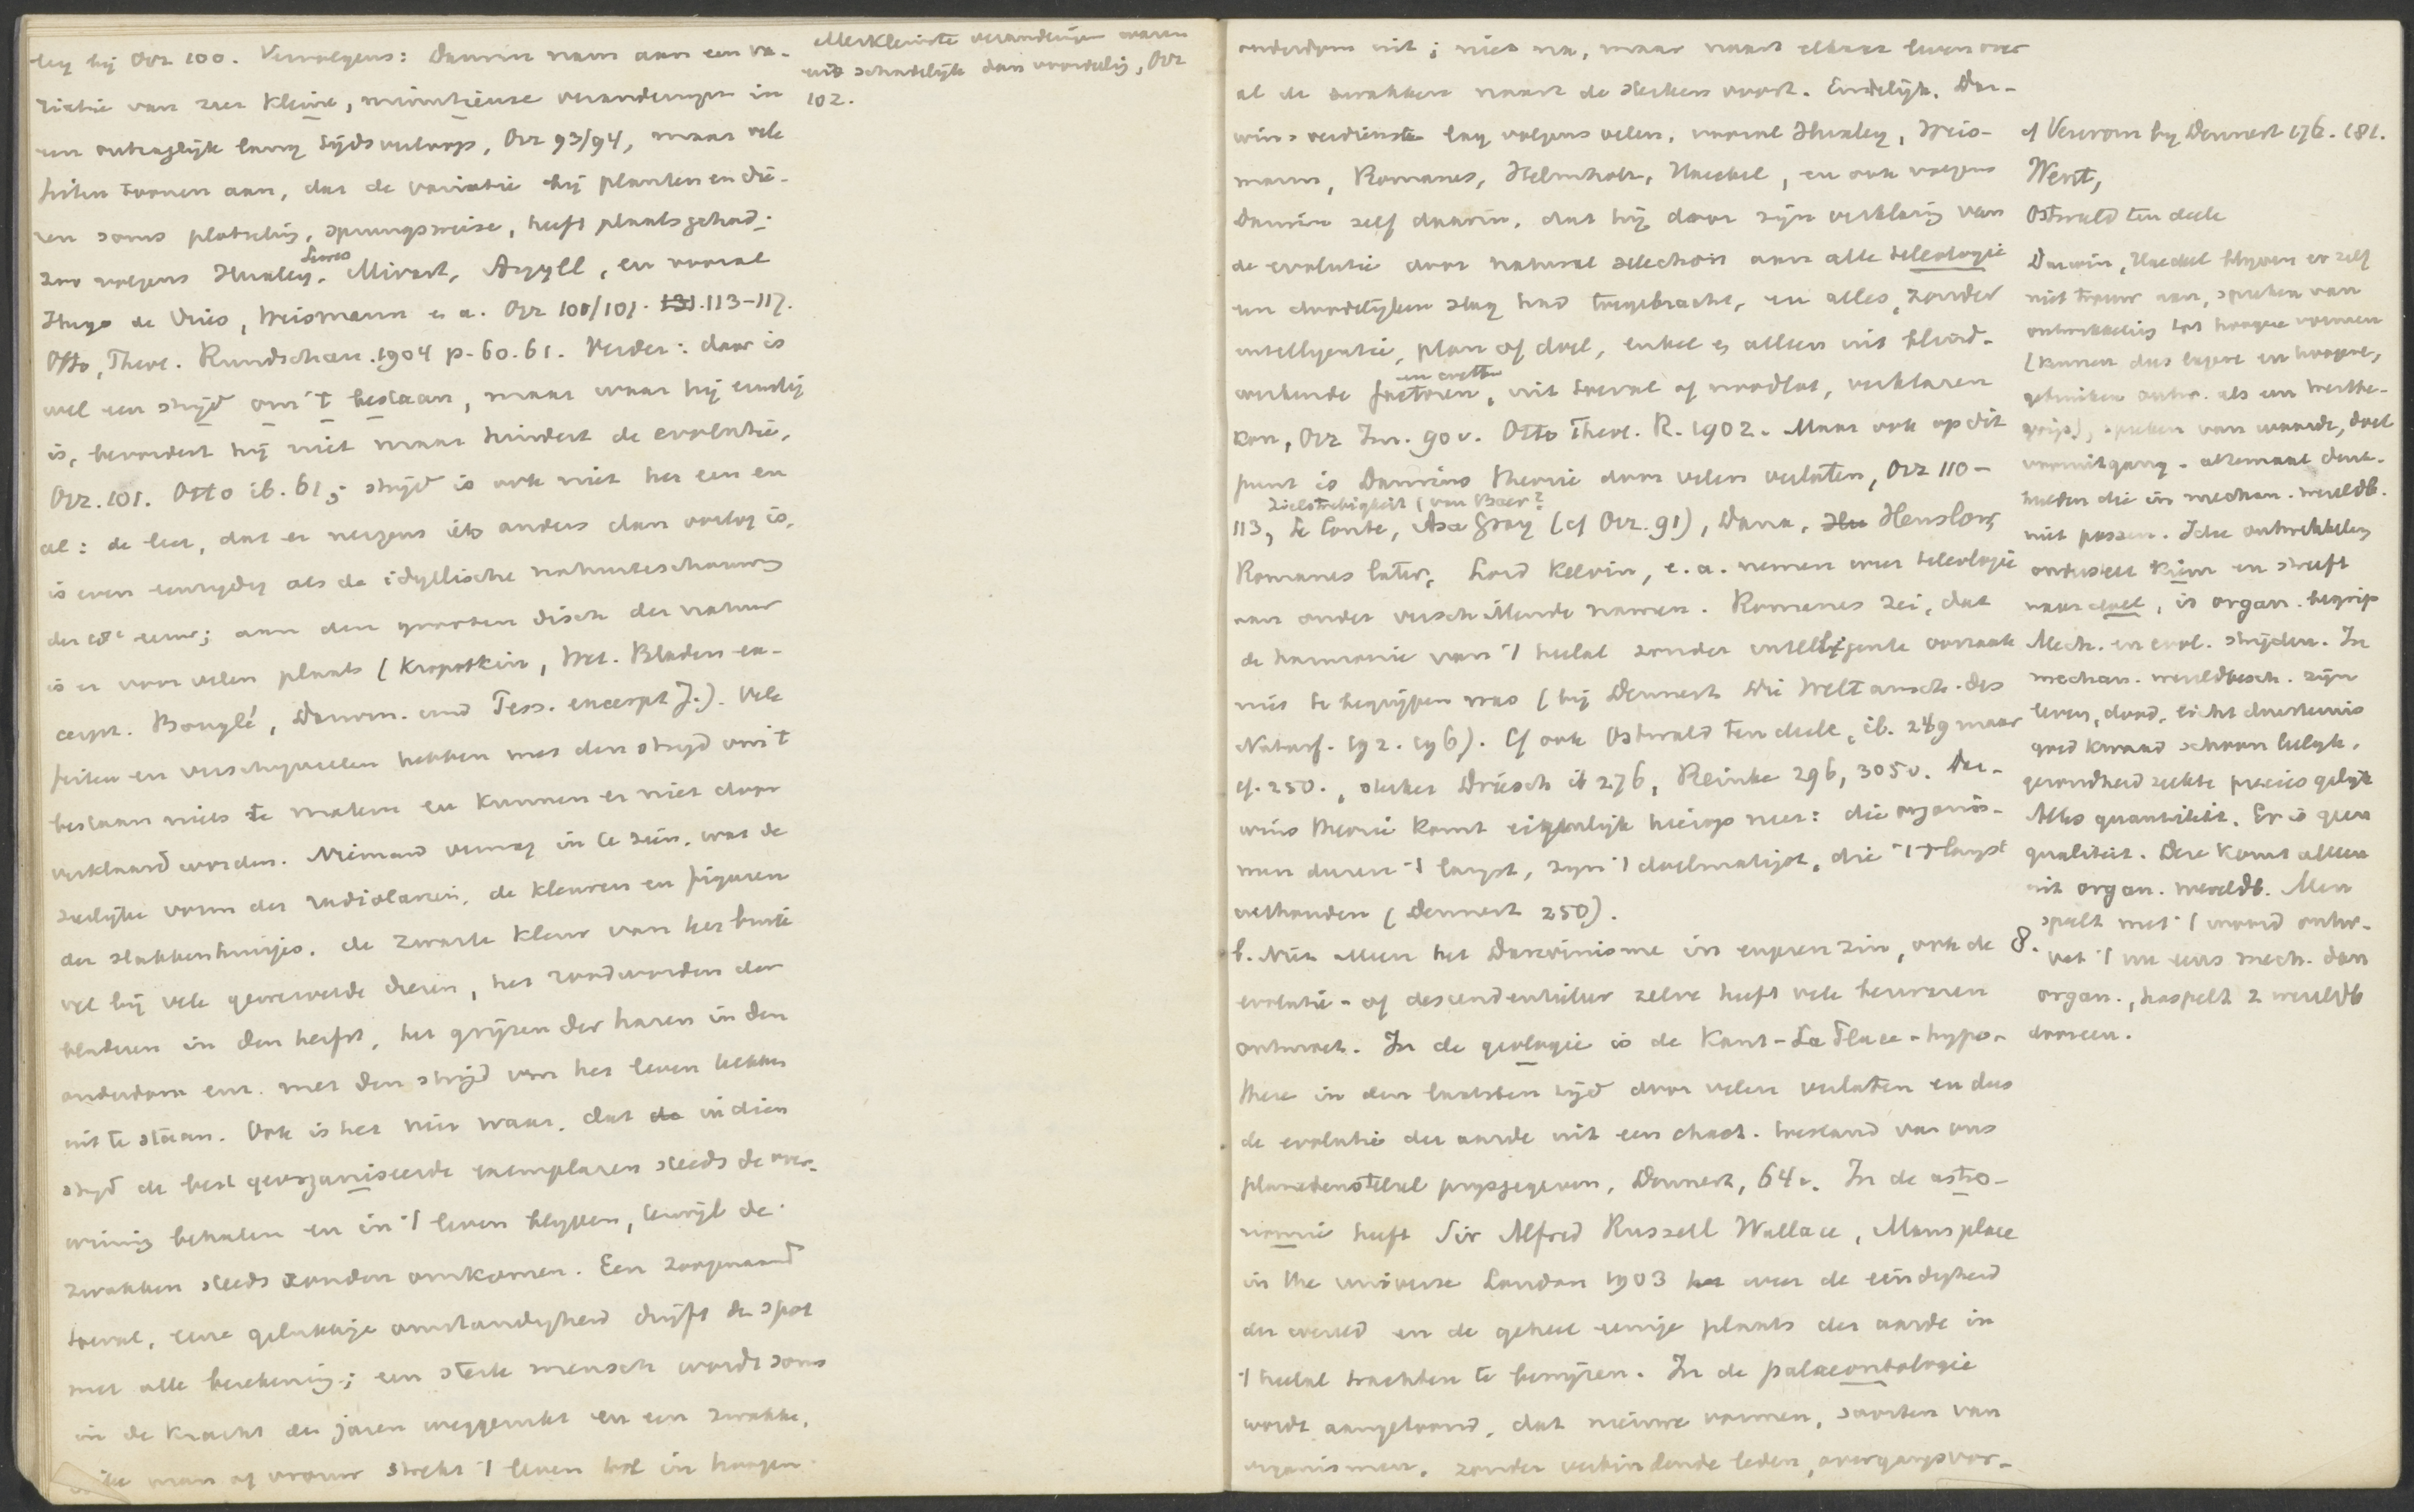 bij Orr 100. Vervolgens: Darwin nam aan een va-
riatie van zeer kleine, minutieuze veranderingen in
een ontzaglijk lang tijdsverloop, Orr 93/94, maar vele
feiten toonen aan, dat de variatie bij planten en die-
ren soms plotseling, sprungsweise, heeft plaats gehad.
zoo volgens Huxley, Mivart, Argyll, en vooral
Hugo de Vries, Weismann e. a. Orr 100/101. 131. 113-117.
Otto, Theol. Rundschau. 1904 p. 60. 61. Verder: daar is
wel een strijd om 't bestaan, maar waar hij ernstig
is, bevordert hij niet maar hindert de evolutie,
Orr. 101. Otto ib. 61; strijd is ook niet het een en
al: de leer, dat er nergens iets anders dan oorlog is,
is even eenzydig als de idyllische natuurbeschouwing
der 18e eeuw; aan den grooten disch der natuur
is er voor velen plaats (Kropotkin, Wet. Bladen ex-
cerpt. Bouglé, Darwin. und Tess. excerpt J.). Vele
feiten en verschijnselen hebben met den strijd om 't
bestaan niets te maken en kunnen er niet door
verklaard worden. Niemand vermag in te zien, wat de
sierlijke vorm der radiolariën, de kleuren en figuren
der slakkenhuisjes, de zwarte kleur van het buik
vel bij vele gewervelde dieren, het rood worden der
bladeren in den herfst, het grijzen der haren in den
ouderdom enz. met den strijd voor het leven hebben
uit te staan. Ook is het niet waar, dat de in dien
strijd de best georganiseerde exemplaren steeds de over-
winning behalen en in 't leven blijven, terwijl de
zwakken steeds zouden omkomen. Een zoogenaamd
toeval, eene gelukkige omstandigheid drijft de spot
met alle berekening; een sterk mensch wordt soms
in de kracht der jaren weggerukt en een zwakke,
man of vrouw strekt 't leven tot in hoogen
Allerkleinste veranderingen waren
eer schadelijk dan voordeelig, Orr
102.
ouderdom uit; niet na, maar naast elkaar leven over
al de zwakken naast de sterken voort. Eindelijk. Dar-
wins verdienste lag volgens velen, vooral Huxley, Weis-
mann, Romanes, Helmholtz, Haeckel, en ook volgens
Darwin zelf daarin, dat hij door zijn verklaring van
de evolutie door natural selection aan alle teleologie
een doodelijken slag had toegebracht, en alles, zonder
intelligentie, plan of doel, enkel en alleen uit blind-
werkende factoren, uit toeval of noodlot, verklaren
kon, Orr Inl. 90 v. Otto Theol. R. 1902. Maar ook op dit
punt is Darwins theorie door velen verlaten, Orr 110-
Zielstrebigkeit (von Baer?
113, Le Conte, Asa Gray (cf Orr. 91), Dana, Henslow,
Romanes later, Lord Kelvin, e. a. nemen weer teleologie
aan onder verschillende namen. Romanes zei, dat
de harmonie van 't heelal zonder intelligente oorzaak
niet te begrijpen was (bij Dennert Die Weltansch. des
Naturf. 192. 196). Cf ook Ostwald ten deele, ib. 249 maar
cf. 250., sterker Driesch ib 276, Reinke 296, 305 v. Dar-
wins theorie komt eigenlijk hierop neer: die organis-
men duren 't langst, zyn 't doelmatigst, die 't 't langst
uithouden (Dennert 250).
b. Niet alleen het Darwinisme in engeren zin, ook de
evolutie- of descendentieleer zelve heeft vele bezwaren
ontmoet. In de geologie is de Kant-La Place-hypo-
these in den laatsten tijd door velen verlaten en dus
de evolutie der aarde uit een chaot. toestand van ons
planetenstelsel prijsgegeven, Dennert, 64 v. In de astro-
nomie heeft Sir Alfred Russell Wallace, Mans place
in the universe London 1903 weer de eindigheid
der wereld en de geheel eenige plaats der aarde in
't heelal trachten te bewijzen. In de palaeontologie
wordt aangetoond, dat nieuwe vormen, soorten van
organismen, zonder verbindende leden, overgangsvor-
cf Verworn by Dennert 176. 181.
Went,
Ostwald ten deele
Darwin, Haeckel blyven er zelf
niet trouw aan, spreken van
ontwikkeling tot hoogere vormen
(kennen dus lagere en hoogere,
gebruiken ontw. als een werthe-
grip), spreken van waarde, doel
vooruitgang - altemaal denk-
beelden die in mechan. wereldb.
niet passen. Idee ontwikkeling
onderstelt kiem en streeft
naar doel, is organ. begrip
Mech. en evol. stryden. In
mechan. wereldbesch. zijn
leven, dood, licht duisternis
goed kwaad schoon lelyk,
gezondheid ziekte precies gelijk
Alles quantiteit. Er is geen
qualiteit. Deze komt alleen
uit organ. wereldb. Men
speelt met 't woord ontw.
vat 't nu eens mech. dan
organ., haspelt 2 wereldb
dooreen.
8.